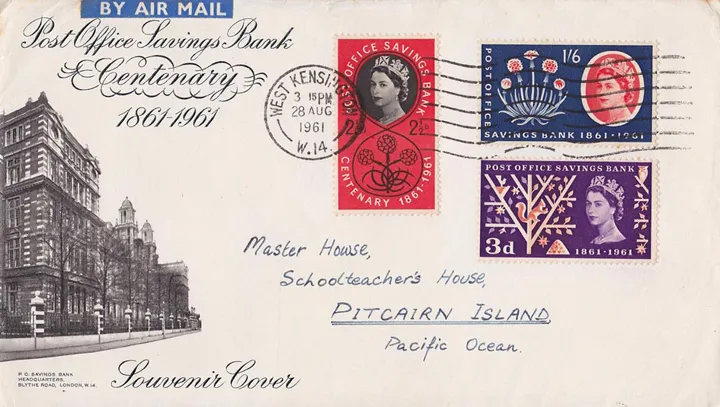 BY AIR MAIL
Post Office Savings Bank
Centenary
1861-1961
WEST KENSINGTON
3 15PM
28 AUG
1961
W.14.
POST OFFICE SAVINGS BANK
2½D
2½D
CENTENARY 1861-1961
1/6
POST OFFICE
SAVINGS BANK 1861-1961
POST OFFICE SAVINGS BANK
3d
1861-1961
Master Howse,
Schoolteacher's House,
PITCAIRN ISLAND
Pacific Ocean.
P.O. SAVINGS BANK
HEADQUARTERS.
BLYTHE ROAD, LONDON, W.14.
Souvenir Cover